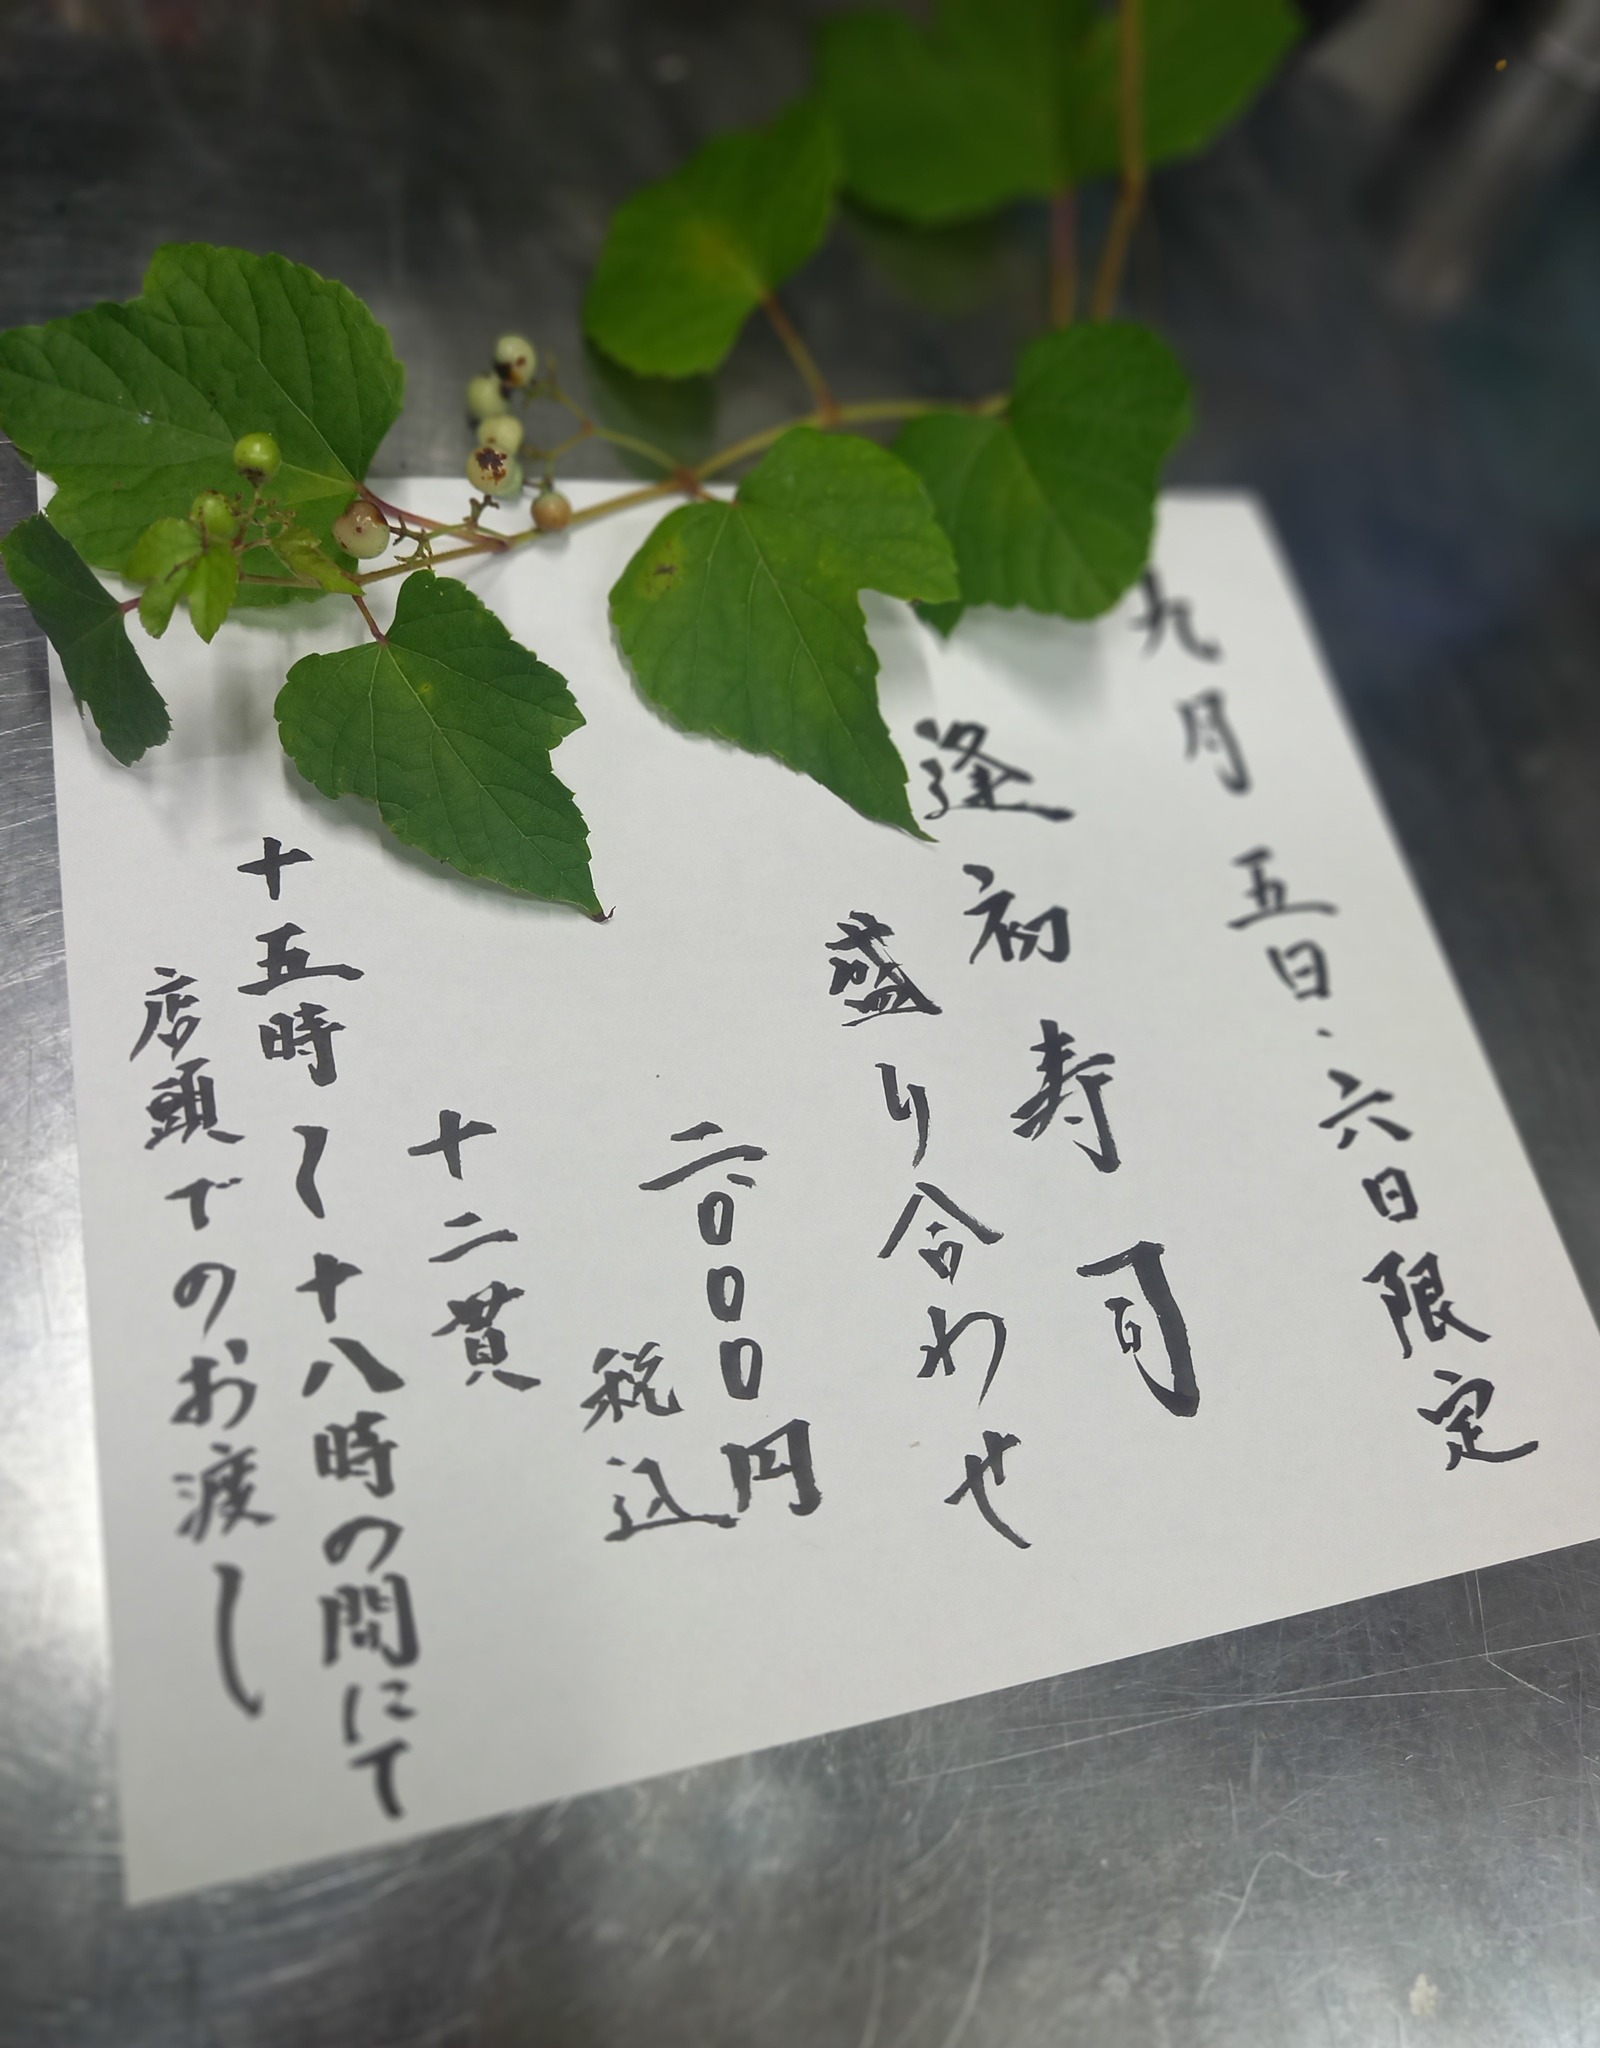 九月五日、六日限定
逢初寿司
盛り合わせ
二、000円
税込
十二貫
十五時〜十八時の間にて
店頭でのお渡し